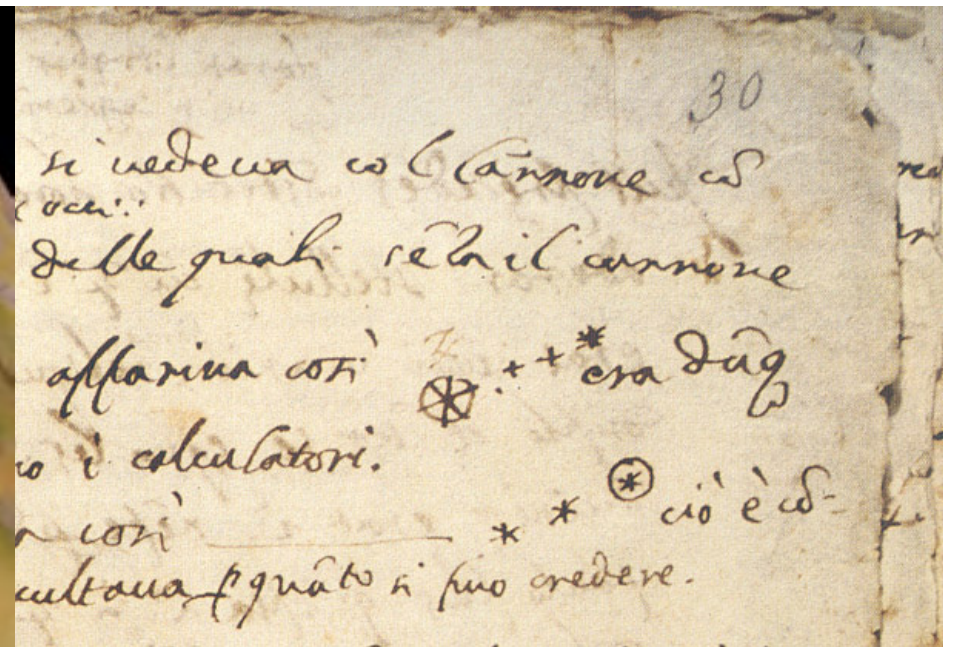 30
si uedeua col Cannone cō
delle quali sēza il cannone
appariua così era dūq
no i calculatori.
così ciò è cō-
cultaua ꝑ quāto si puo credere.